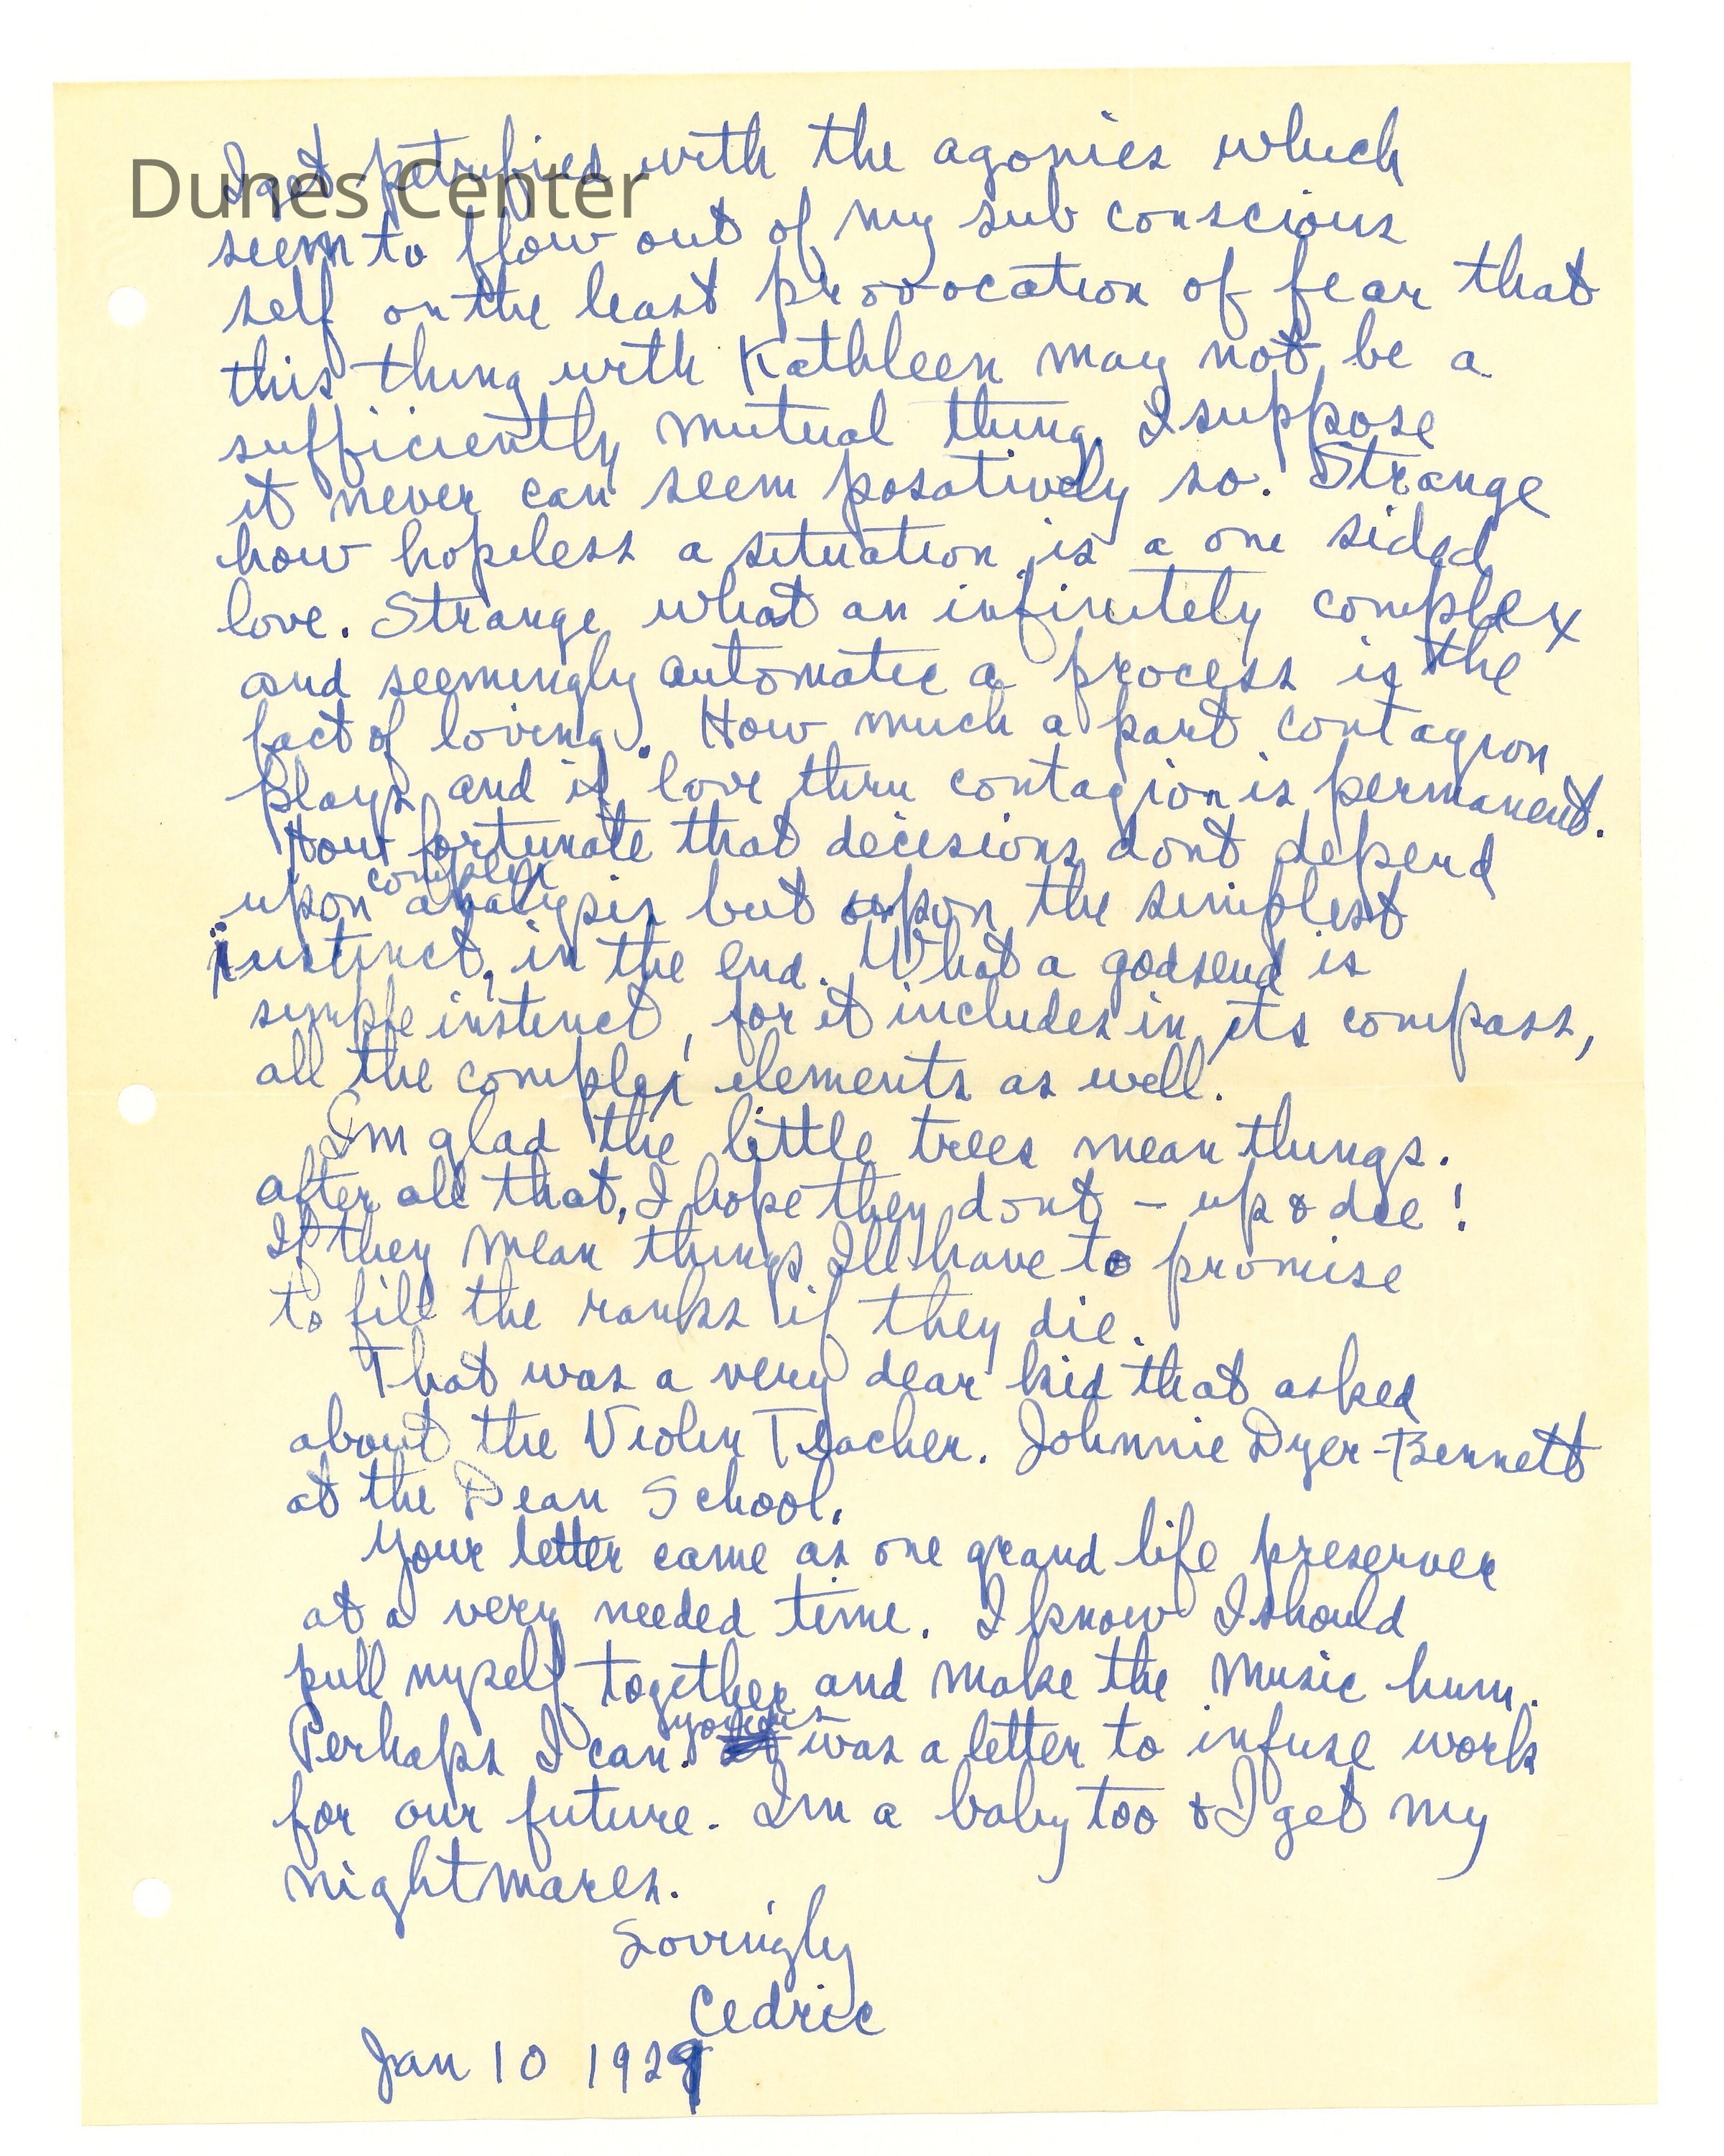 Dunes Center
I get petrified with the agonies which
seem to flow out of my sub conscious
self on the least provocation of fear that
this thing with Kathleen may not be a
sufficiently mutual thing. I suppose
it never can seem posatively so. Strange
how hopeless a situation is a one sided
love. Strange what an infinitely complex
and seemingly automatic a process is the
fact of loving. How much a part contagion
plays and if love thru contagion is permanent.
How fortunate that decisions dont depend
upon complex analysis but upon the simplest
instinct, in the end. What a godsend is
simple instinct, for it includes in its compass,
all the complex elements as well.
Im glad the little trees mean things.
after all that, I hope they dont – up & die!
If they mean things Ill have to promise
to fill the ranks if they die.
That was a very dear kid that asked
about the Violin Teacher. Johnnie Dyer-Bennett
at the Dean School.
Your letter came as one grand life preserver
at a very needed time. I know I should
pull myself together and make the music hum.
Perhaps I can. yours was a letter to infuse work
for our future. Im a baby too & I get my
nightmares.
Lovingly
Cedric
Jan 10 1929